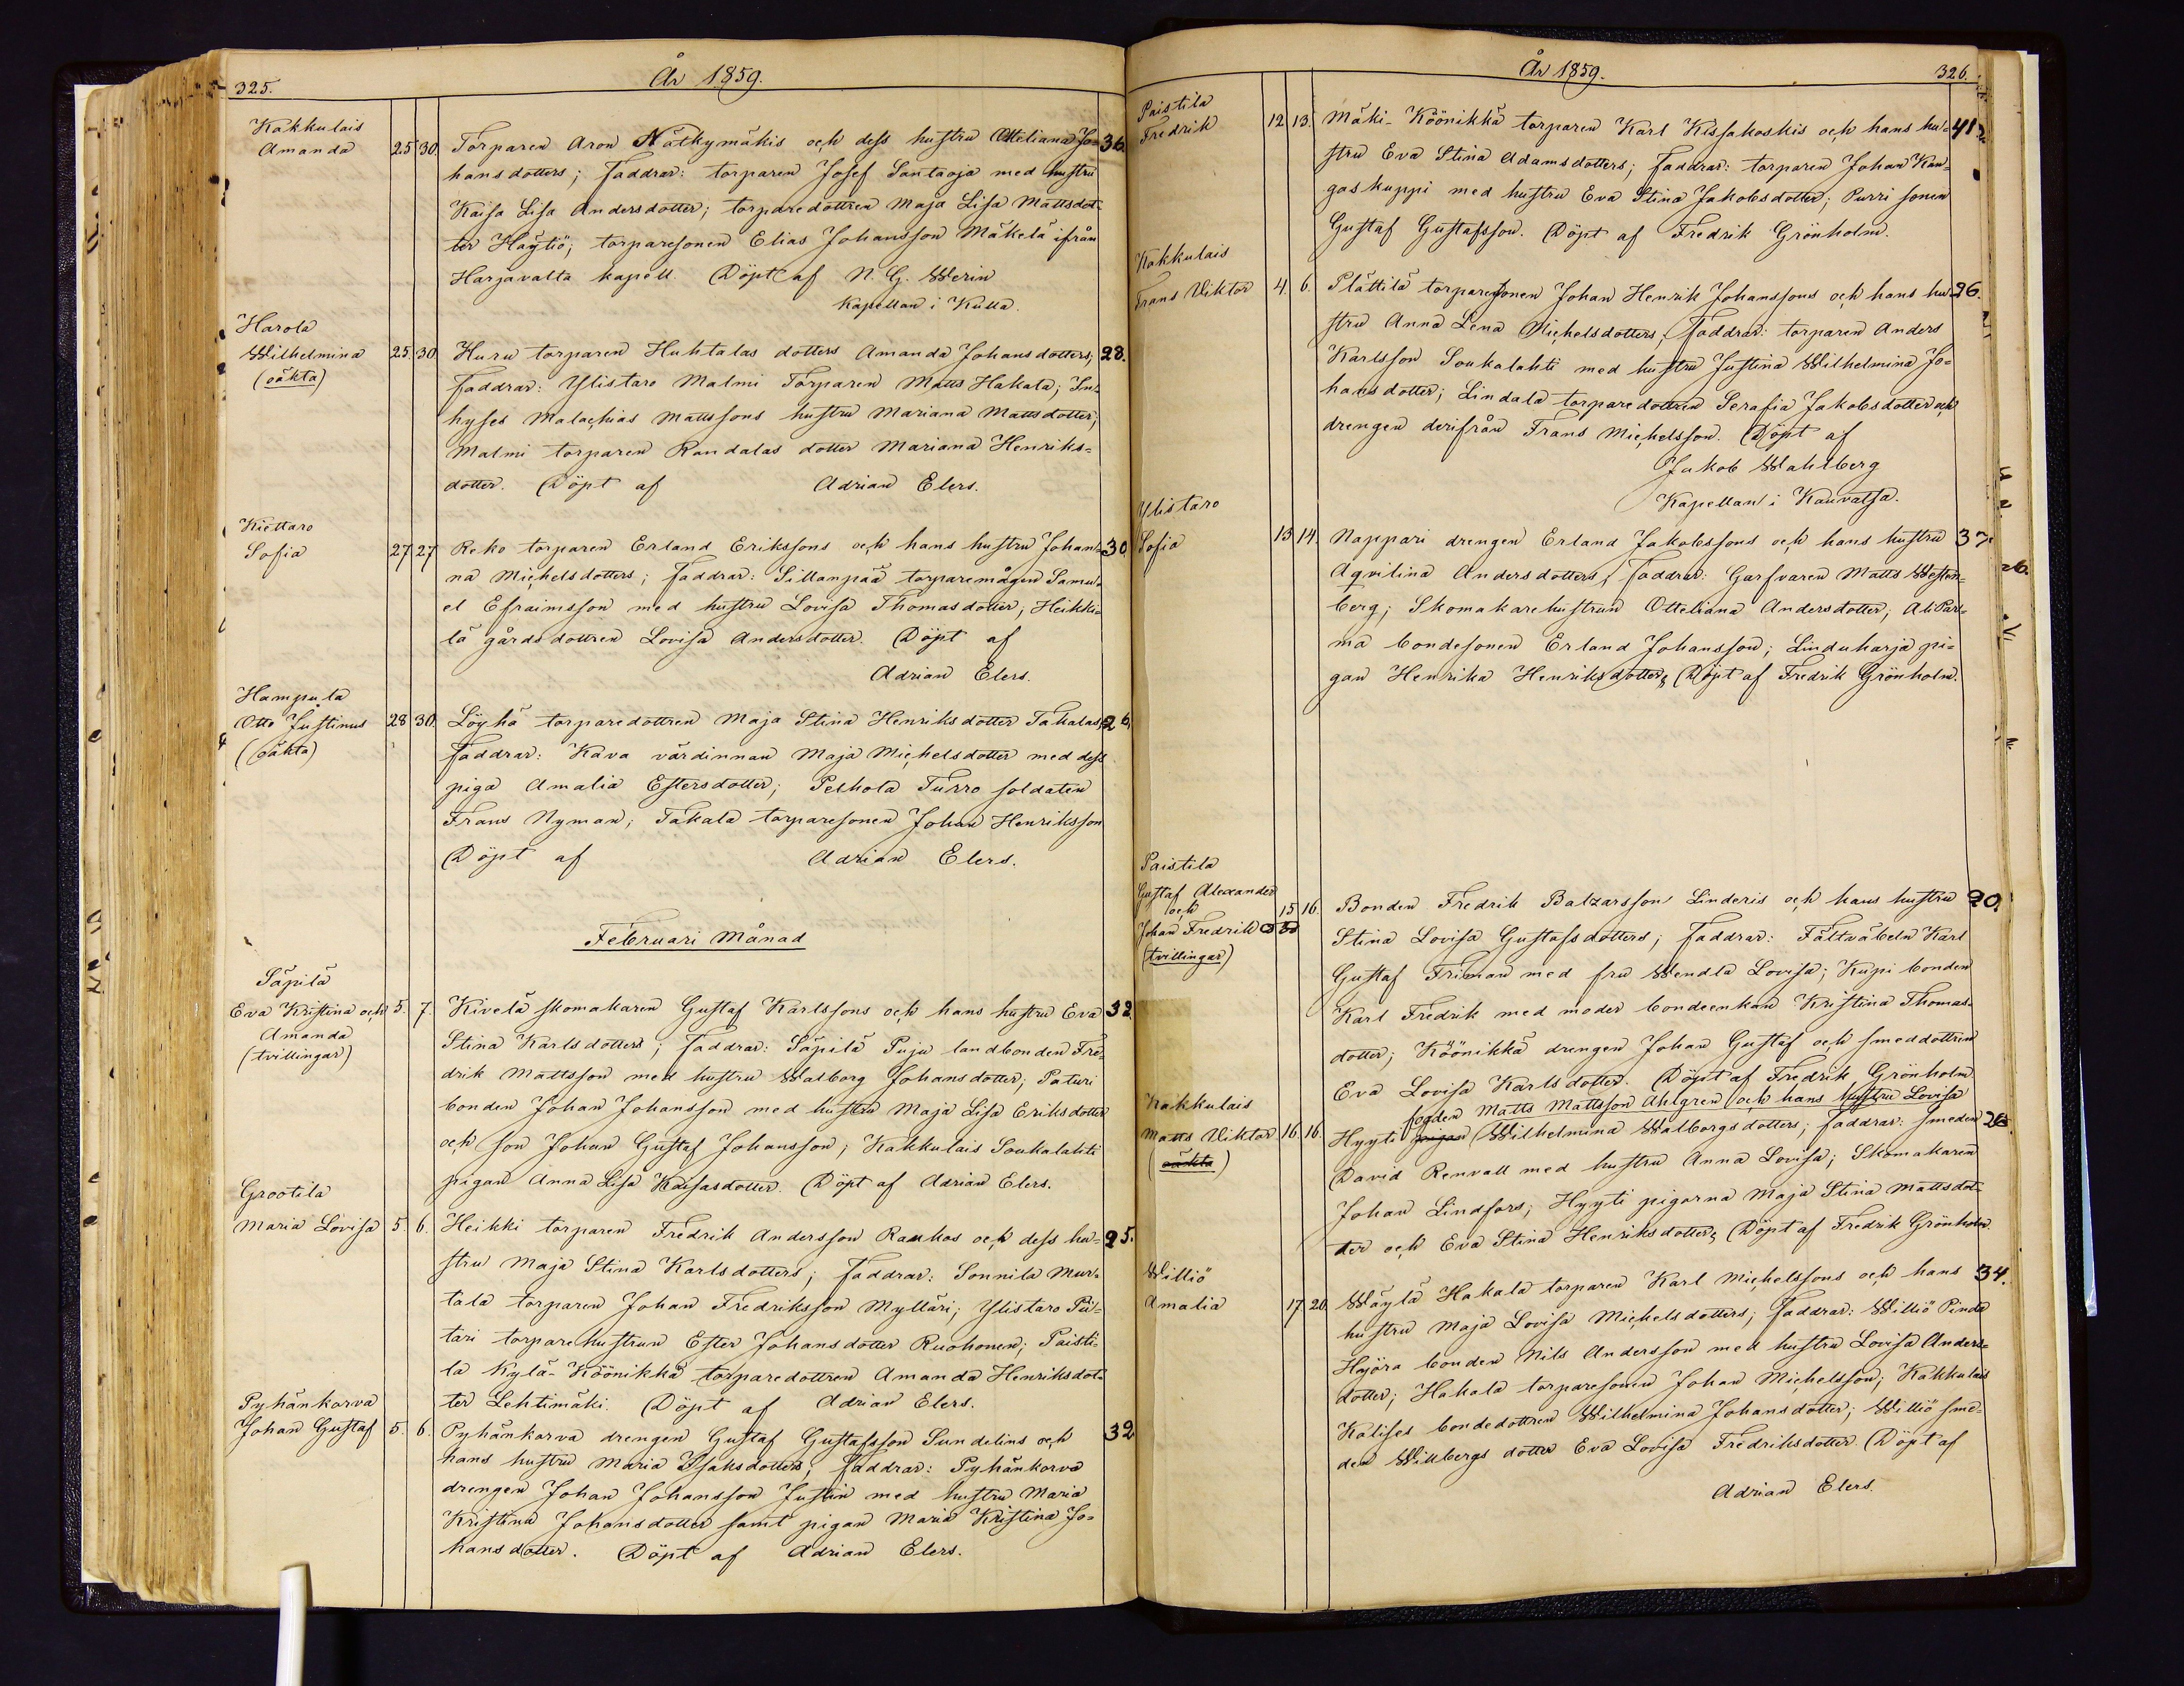 325.
År 1859.
Kakkulais
Amanda
25 30. Torparen Aron Nätkymäkis och dess hustru Otteliana Jo= 36.
hansdotters; faddrar: torparen Josef Santaoja med hustru
Kaisa Lisa Andersdotter; torparedottren Maja Lisa Mattsdot=
ter Häytiö; torparesonen Elias Johansson Mäkelä ifrån
Harjavalta kapell. Döpt af N. G. Werin
Kapellan i Kulla.
Harola
Wilhelmina
(oäkta)
25. 30. Huru torparen Huhtalas dotters Amanda Johansdotters; 28.
faddrar: Ylistaro Malmi Torparen Matts Hakala; In=
hyses Malachias Mattssons hustru Mariana Mattsdotter;
Malmi torparen Randalas dotter Mariana Henriks=
dotter. Döpt af Adrian Elers.
Kiettaro
Sofia
27 27 Reko torparen Erland Erikssons och hans hustru Johan= 30
na Michelsdotters; faddrar: Sillanpää torparemågen Samu=
el Efraimsson med hustru Lovisa Thomasdotter; Heikki=
lä gårdsdottren Lovisa Andersdotter. Döpt af
Adrian Elers.
Hampula
Otto Justinus
(oäkta)
28 30. Löyhä torparedottren Maja Stina Henriksdotter Takalas; 26,
faddrar: Kava värdinnan Maja Michelsdotter med dess
piga Amalia Estersdotter; Pelhola Turro soldaten
Frans Nyman; Takala torparesonen Johan Henriksson
Döpt af Adrian Elers.
Februari Månad
Säpilä
Eva Kristina och
Amanda
(tvillingar)
5. 7. Kivelä skomakaren Gustaf Karlssons och hans hustru Eva 32.
Stina Karlsdotters; faddrar: Säpilä Puju landbonden Fre=
drik Mattsson med hustru Walborg Johansdotter; Paturi
bonden Johan Johansson med hustru Maja Lisa Eriksdotter
och son Johan Gustaf Johansson; Kakkulais Soukalahti
pigan Anna Lisa Kaisasdotter. Döpt af Adrian Elers.
Grootila
Maria Lovisa
5. 6. Heikki torparen Fredrik Andersson Raukos och dess hu= 25.
stru Maja Stina Karlsdotters; faddrar: Sonnila Mur=
tala torparen Johan Fredriksson Mylläri; Ylistaro Pii=
tari torparehustrun Ester Johansdotter Ruohonen; Paisti=
la Kylä-Köönikkä torparedottren Amanda Henriksdot=
ter Lehtimäki. Döpt af Adrian Elers.
Pyhänkorva
Johan Gustaf
5. 6. Pyhänkorva drengen Gustaf Gustafsson Sundelins och 32
hans hustru Maria Isaksdotters; faddrar: Pyhänkorva
drengen Johan Johansson Justin med hustru Maria
Kristina Johansdotter samt pigan Maria Kristina Jo=
hansdotter. Döpt af Adrian Elers.
År 1859.
326.
Paistila
Fredrik
12 13. Mäki-Köönikkä torparen Karl Kissakoskis och hans hu= 41
stru Eva Stina Adamsdotters; faddrar: torparen Johan Kan=
gaskuppi med hustru Eva Stina Jakobsdotter; Purri sonen
Gustaf Gustafsson. Döpt af Fredrik Grönholm.
Kakkulais
Frans Viktor
4. 6. Plättilä torparesonen Johan Henrik Johanssons och hans hu= 26.
stru Anna Lena Michelsdotters; faddrar: torparen Anders
Karlsson Soukalahti med hustru Justina Wilhelmina Jo=
hansdotter; Lindala torparedottren Serafia Jakobsdotter och
drengen derifrån Frans Michelsson. Döpt af
Jakob Wahlberg
Kapellan i Kauvatsa.
Ylistaro
Sofia
13 14. Nappari drengen Erland Jakobssons och hans hustru 37.
Aqvilina Andersdotters; faddrar: Garfvaren Matts Westen=
berg; Skomakarehustrun Otteliana Andersdotter; Ali Par=
ma bondesonen Erland Johansson; Linduharja pi=
gan Henrika Henriksdotter; Döpt af Fredrik Grönholm.
Paistila
Gustaf Alexander
och
Johan Fredrik
(tvillingar)
15 16. Bonden Fredrik Balzarsson Linderis och hans hustru 20.
Stina Lovisa Gustafsdotters; faddrar: Fältväbeln Karl
Gustaf Friman med fru Wendla Lovisa; Kupi bonden
Karl Fredrik med moder bondeenkan Kristina Thomas=
dotter; Köönikkä drengen Johan Gustaf och smeddottren
Eva Lovisa Karlsdotter. Döpt af Fredrik Grönholm
Kakkulais
Matts Viktor
(oäkta)
fogden Matts Mattsson Ahlgren och hans hustru Lovisa
16. 16. Hyyti pigan Wilhelmina Walborgsdotters; faddrar: smeden 26
David Renvall med hustru Anna Lovisa; Skomakaren
Johan Lindfors; Hyyti pigorna Maja Stina Mattsdot=
ter och Eva Stina Henriksdotter; Döpt af Fredrik Grönholm.
Williö
Amalia
17. 20. Wäylä Hakala torparen Karl Michelssons och hans 34.
hustru Maja Lovisa Michelsdotters; faddrar: Williö Pinda
Hajöra bonden Nils Andersson med hustru Lovisa Anders=
dotter; Hakala torparesonen Johan Michelsson; Kakkulais
Kalises bondedottren Wilhelmina Johansdotter; Williö sme=
den Willbergs dotter Eva Lovisa Fredriksdotter. Döpt af
Adrian Elers.